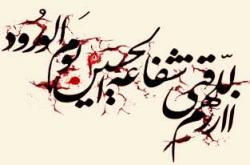 اللهم ارزقنی شفاعة الحسین یوم الورود